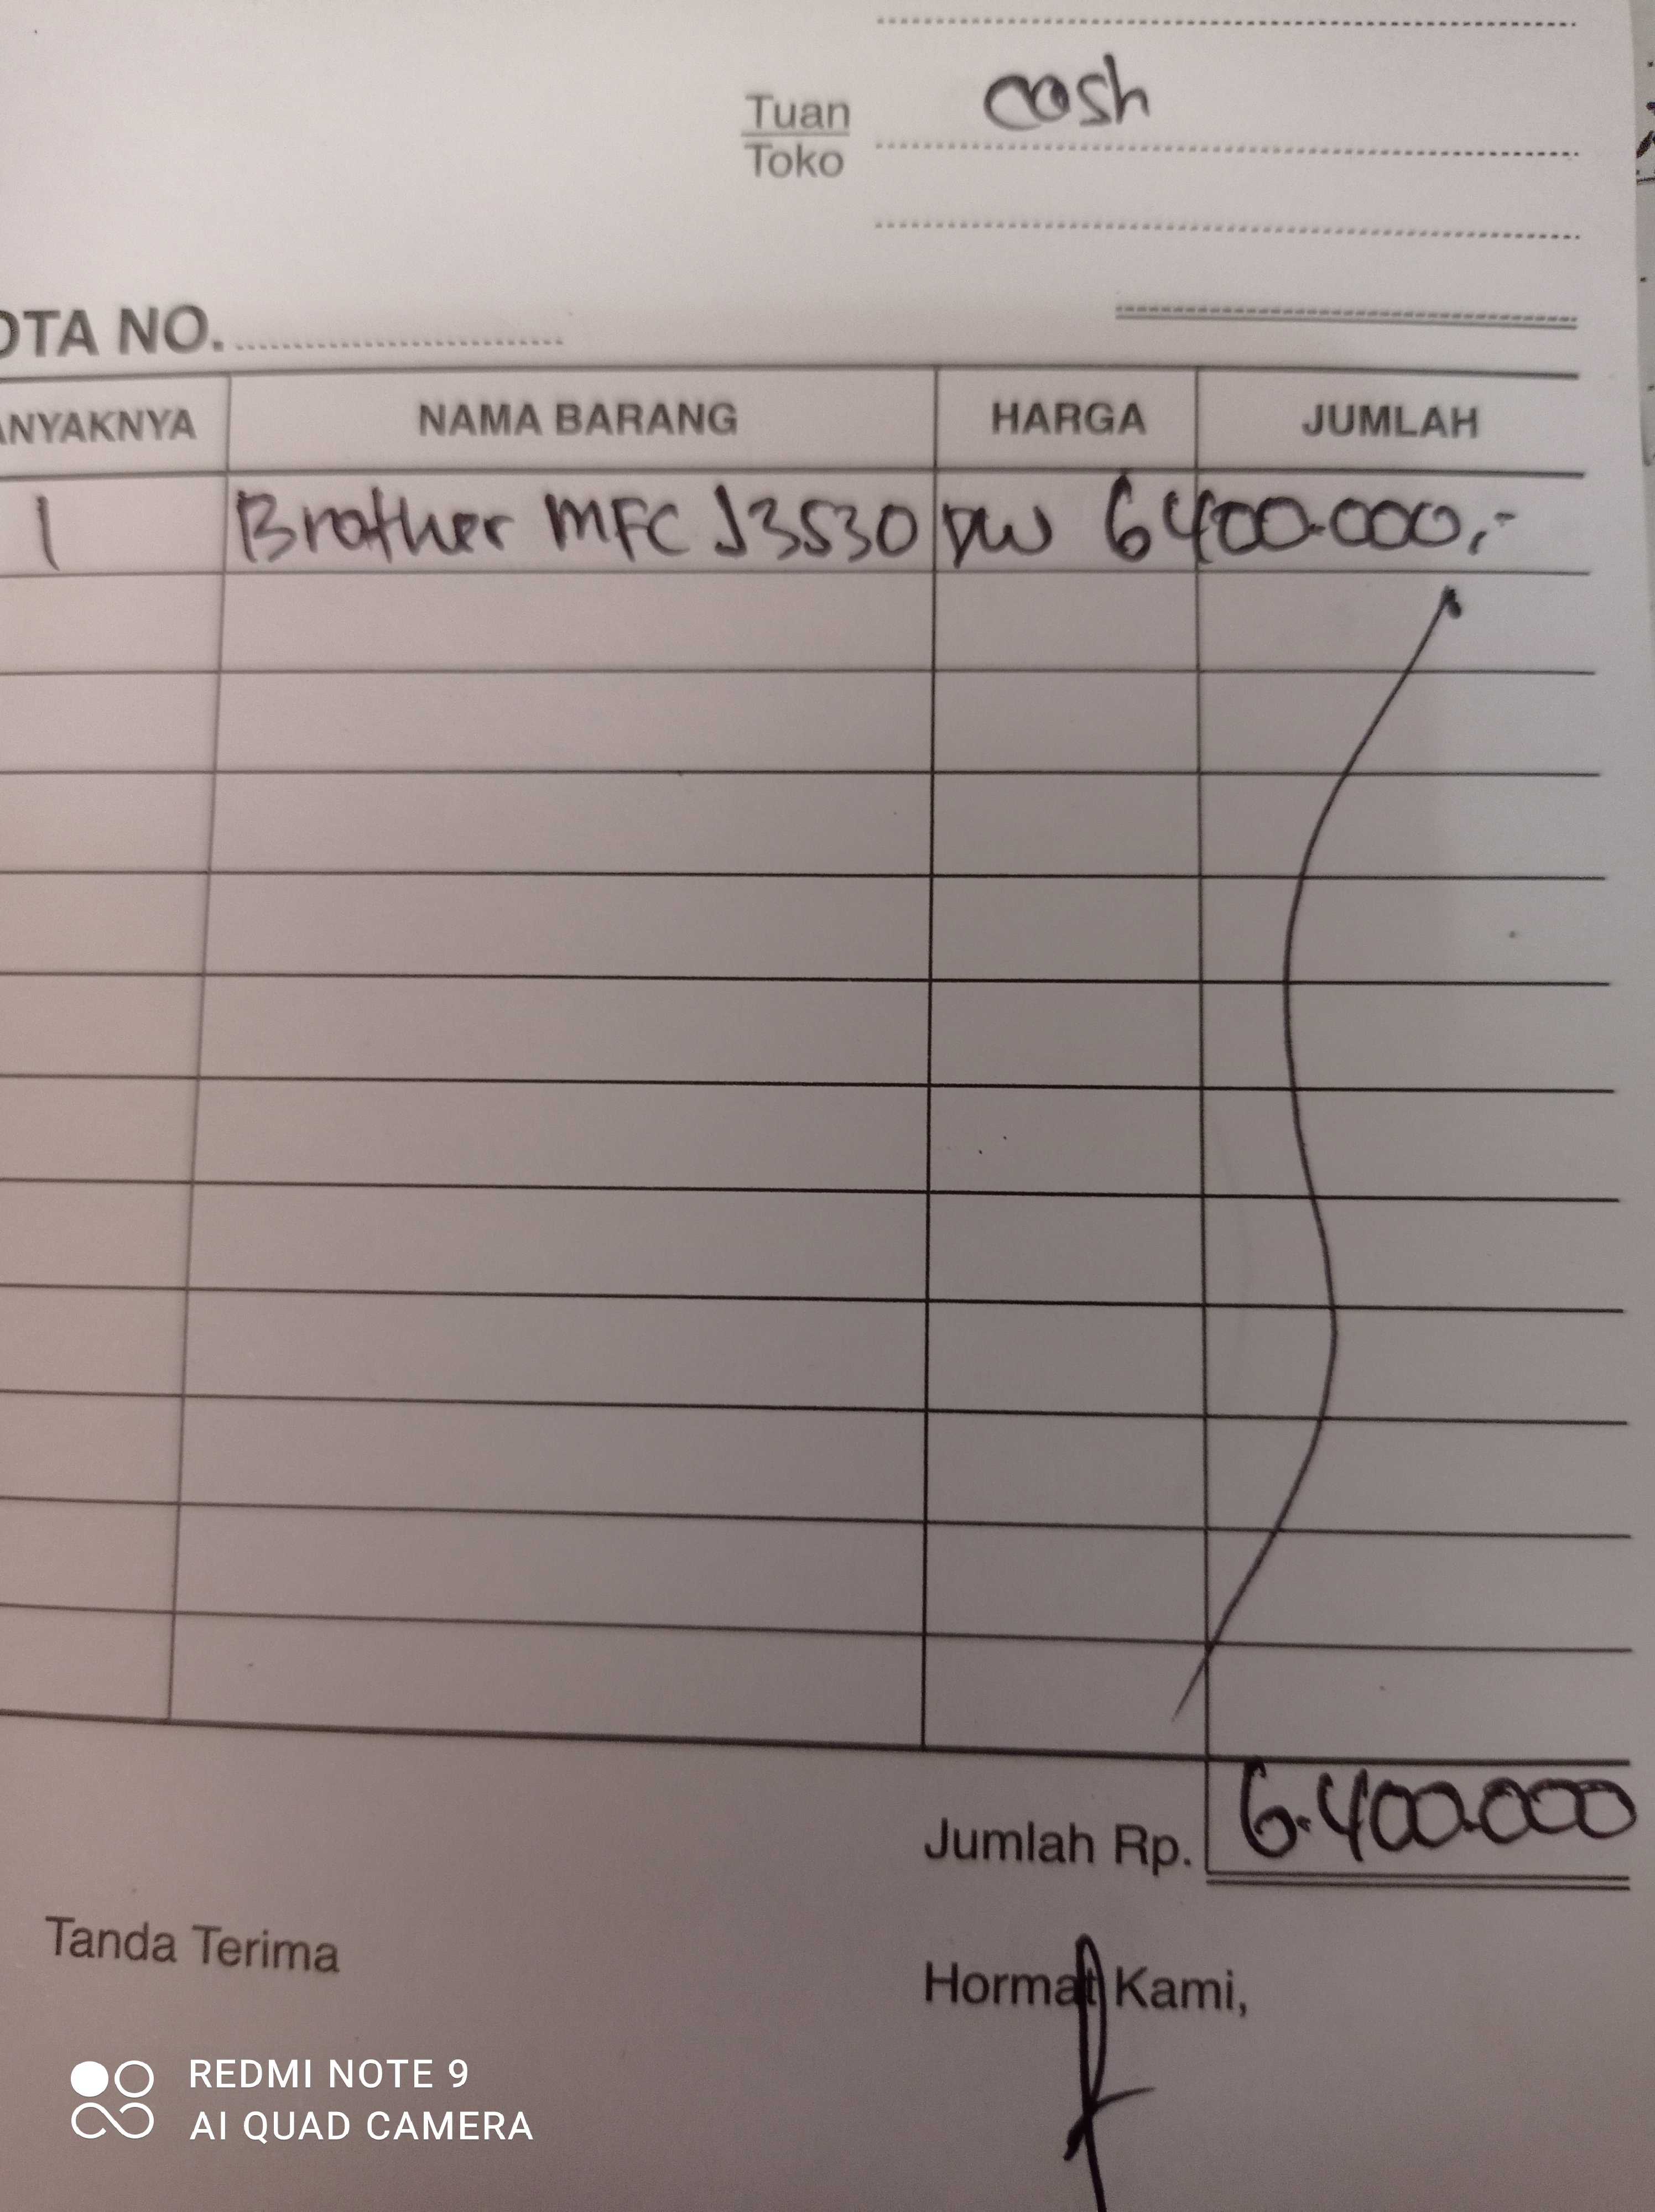 cash
Tuan
Toko
OTA NO.
ANYAKNYA NAMA BARANG HARGA JUMLAH
1 Brother MFC J3530 DW 6400.000,-
Jumlah Rp. 6.400.000
Tanda Terima
Hormat Kami,
REDMI NOTE 9
AI QUAD CAMERA